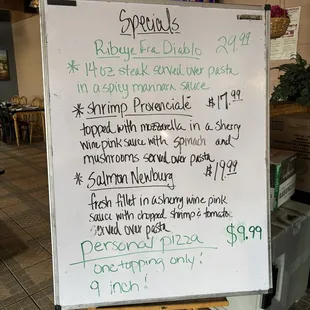 Specials
Ribeye Fra Diablo 29.99
* 14oz steak served over pasta
in a spicy mannara sauce
* Shrimp Provenciale $17.99
topped with mozzarella in a sherry
wine pink sauce with spinach and
mushrooms served over pasta
* Salmon Newburg $19.99
fresh fillet in a sherry wine pink
sauce with chopped shrimp & tomato
served over pasta
personal pizza $9.99
one topping only!
9 inch!